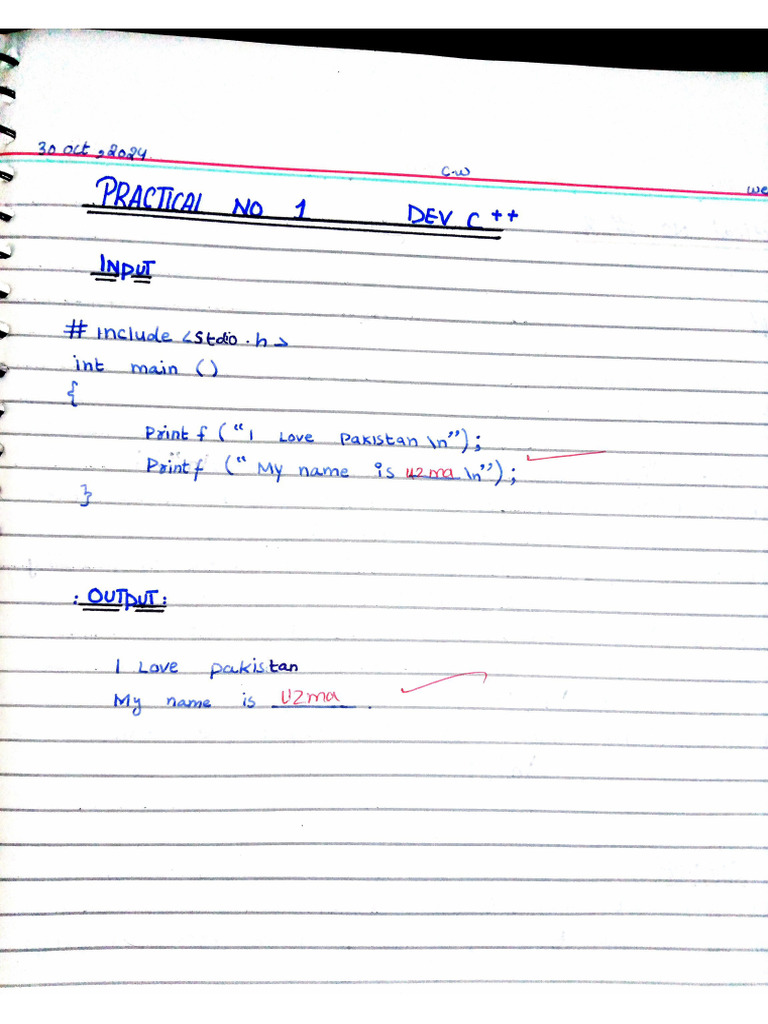 30 Oct, 2024.
C.W
We
PRACTICAL NO 1 DEV C++
INPUT
# include <stdio.h>
int main ()
{
Printf ("I Love Pakistan \n");
Printf ("My name is uzma \n");
}
: OUTPUT :
I Love pakistan
My name is Uzma.